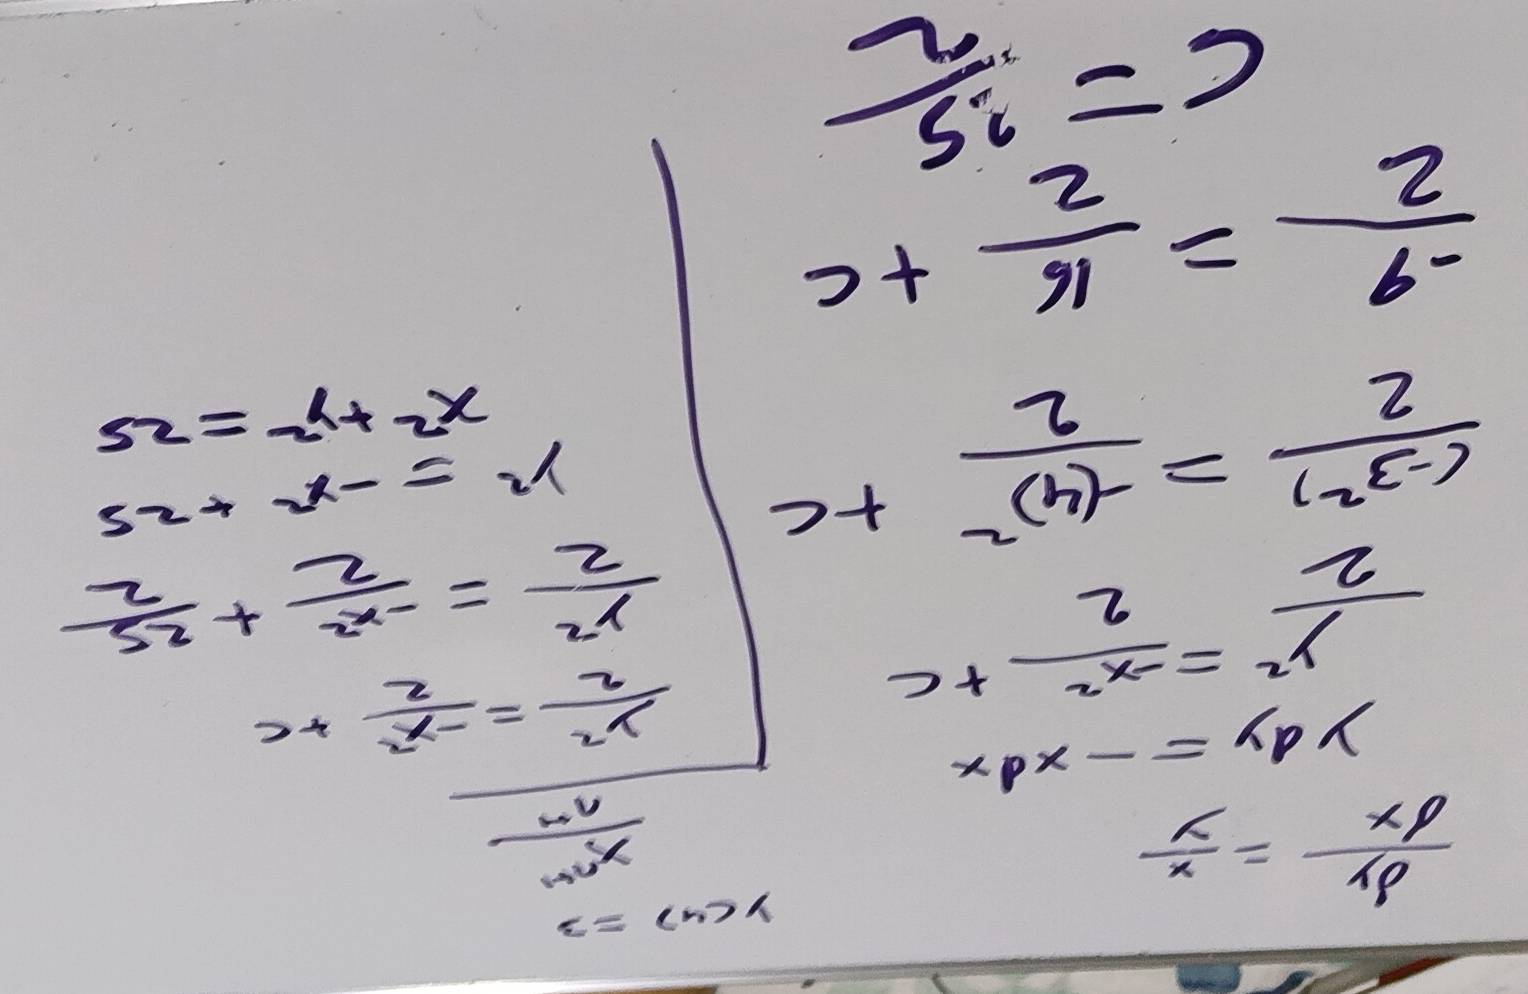 dy/dx = x/y
y dy = -x dx
y²/2 = -x²/2 + c
(-3²)/2 = -(4)²/2 + c
-9/2 = 16/2 + c
c = 25/2
y(4) = 3
y²/2 = -x²/2 + c
y²/2 = -x²/2 + 25/2
y² = -x² + 25
x² + y² = 25